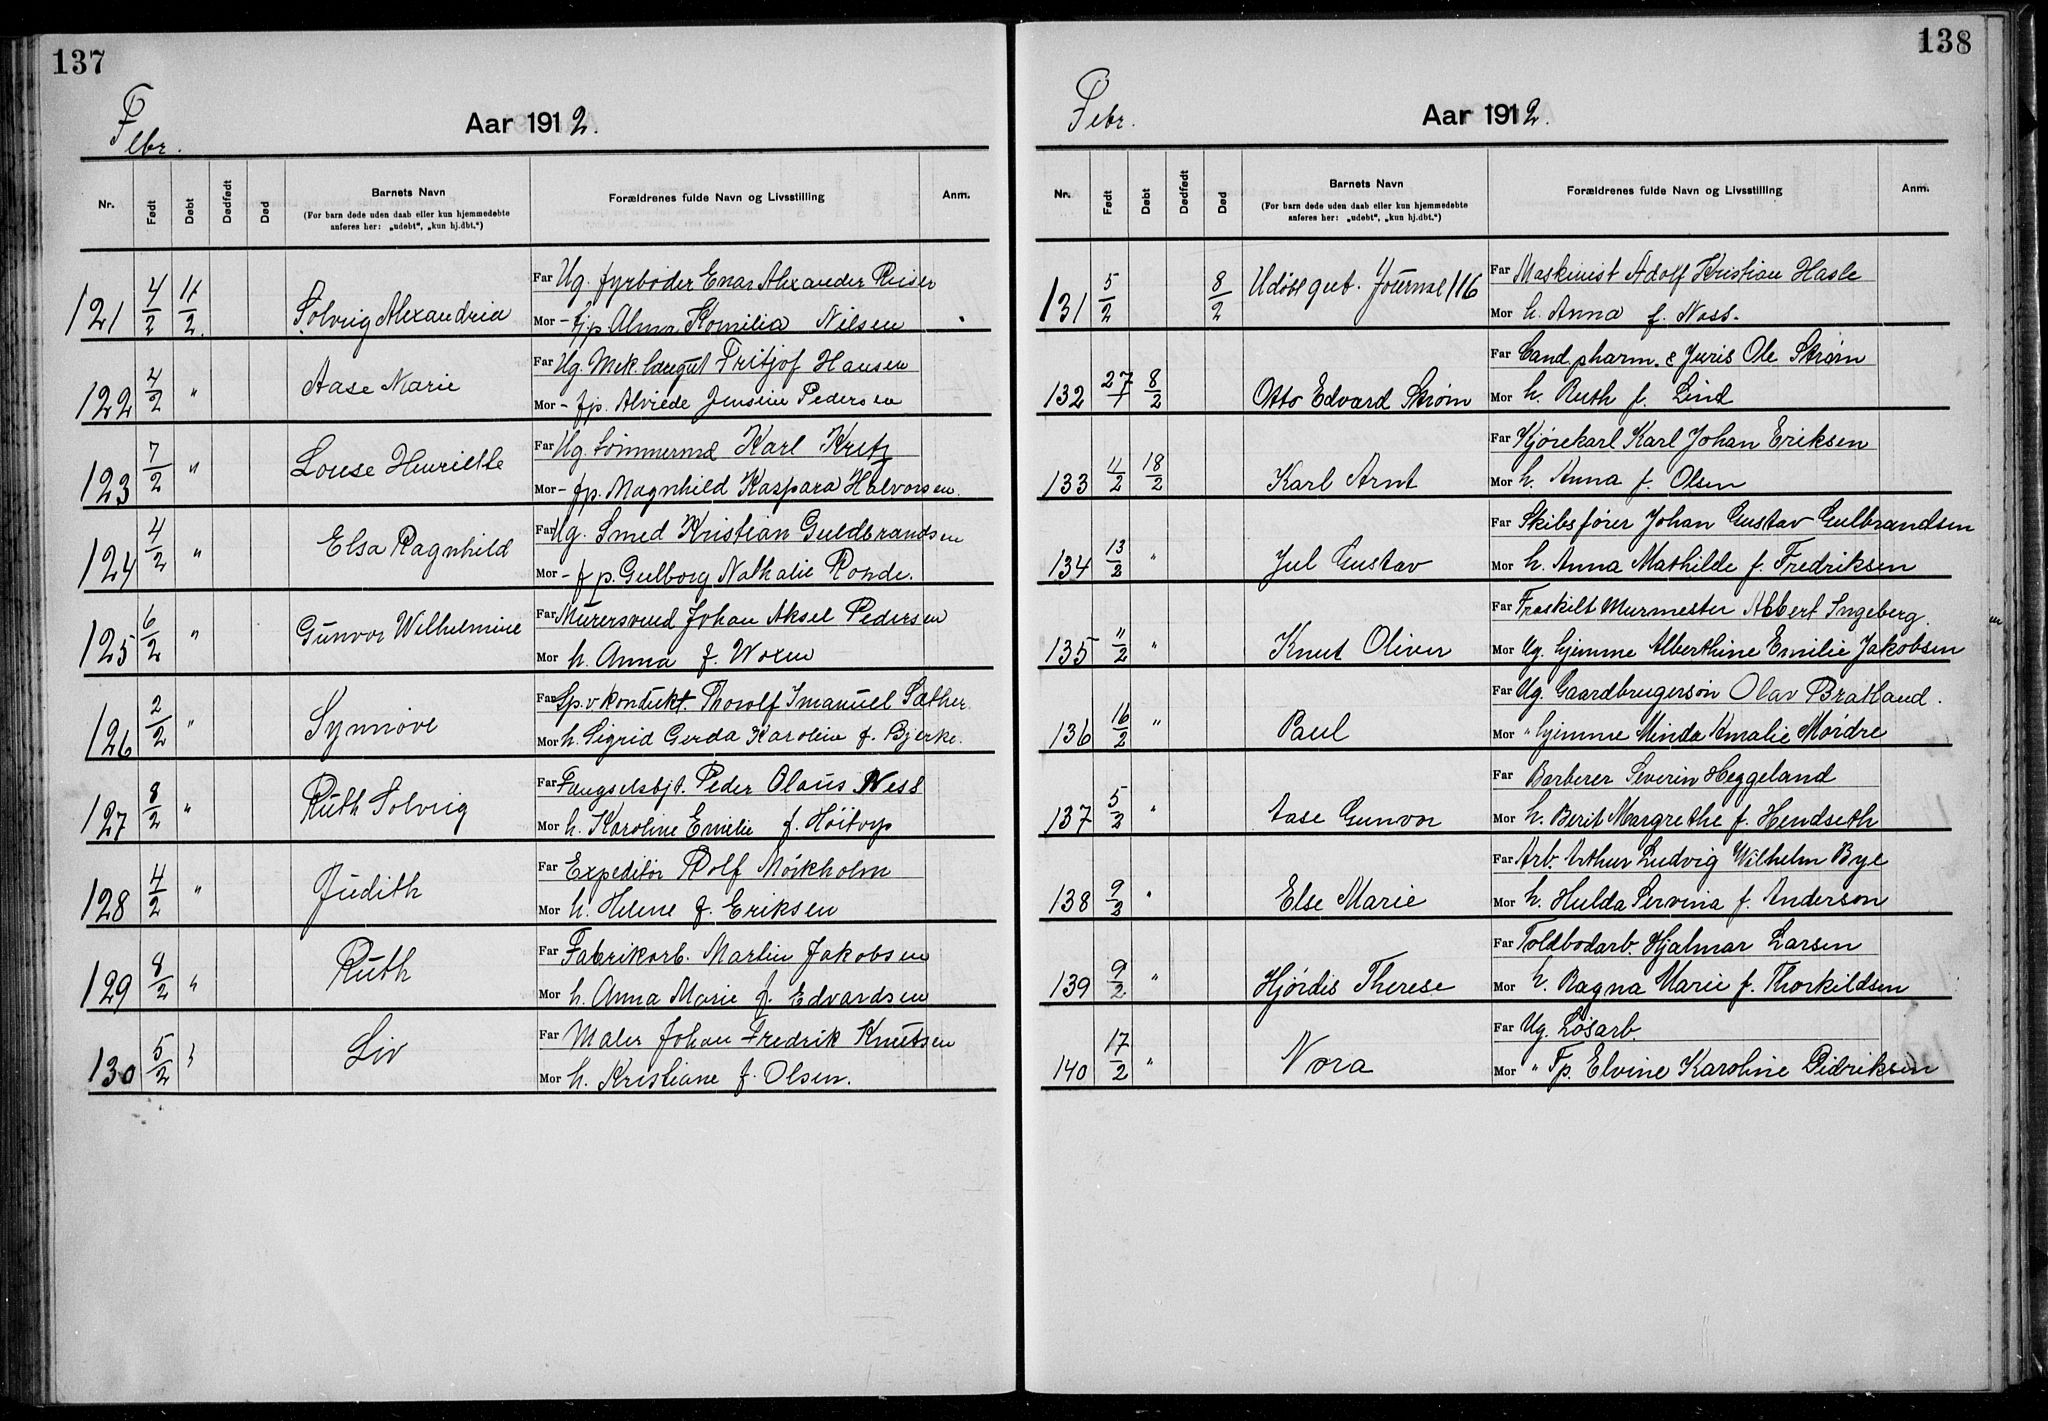 137
Febr.
Aar 1912.
Nr.
Født
Døbt
Dødfødt
Død
Barnets Navn
(For barn døde uden daab eller kun hjemmedøbte
anføres her: „udøbt", „kun hj.dbt.")
Forældrenes fulde Navn og Livsstilling
Anm.
121 4/2 11/2. Solveig Alexandria
Far Ug. fyrbøder Enar Alexander
Mor - fp. Alma Komilia Nilsen
122 4/2 " Aase Marie
Far Ug. Mek. Fritjof Hansen
Mor - fp. Alviede Jensine Pedersen
123 7/2 " Louse Henriette
Far Ug. tømmermd Karl Kritz
Mor - fp. Magnhild Kaspara Halvorsen.
124 4/2 " Elsa Ragnhild
Far Ug. Smed Kristian Guldbrandsen
Mor - fp. Gulborg Nathalie Ronde.
125 6/2 " Gunvor Wilhelmine
Far Murersvend Johan Aksel Pedersen
Mor h. Anna f. Woxen
126 2/2 " Synnøve
Far Sp.v kondukt Thorolf Imanuel Sæther
Mor h. Sigrid Gerda Karoline f. Bjerke.
127 8/2 " Ruth Solveig
Far Fængselsbjt. Peder Olaus Ness
Mor h. Karoline Emilie f. Höitvys
128 4/2 " Judith
Far Expeditør Rolf Mörkholm
Mor h. Helene f. Eriksen
129 8/2 " Ruth
Far Fabrikarb. Martin Jakobsen
Mor h. Anna Marie f. Edvardsen
130 5/2 " Liv
Far Maler Johan Fredrik Knutsen
Mor h. Kristiane f. Olsen.
138
Febr.
Aar 1912.
Nr.
Født
Døbt
Dødfødt
Død
Barnets Navn
(For barn døde uden daab eller kun hjemmedøbte
anføres her: „udøbt", „kun hj.dbt.")
Forældrenes fulde Navn og Livsstilling
Anm.
131 5/2 8/2 Udøbt gut. Journal 116
Far Maskinist Adolf Kristian Hasle
Mor h. Anna f. Noss.
132 27/1 8/2 Otto Edvard Strøm
Far Cand. pharm. & Juris Ole Strøm
Mor h. Ruth f. Lind
133 4/2 18/2 Karl Arnt
Far Kjørekarl Karl Johan Eriksen
Mor h. Anna f. Olsen
134 13/2 " Jul Gustav
Far Skibsfører Johan Gustav Gulbrandsen
Mor h. Anna Mathilde f. Fredriksen
135 11/2 " Knut Oliver
Far Fraskilt Murmester Albert Ingeberg.
Mor Ug. hjemme Alberthine Emilie Jakobsen
136 16/2 " Paul
Far Ug. Gaardbrugersøn Olav Bratland.
Mor " hjemme Minda Amalie Mørdre
137 5/2 " Aase Gunvor
Far Barberer Severin Heggeland
Mor h. Berit Margrethe f. Hendseth
138 9/2 " Else Marie
Far Arb. Arthur Ludvig Wilhelm Bye
Mor h. Hulda Servina f. Anderson
139 9/2 " Hjørdis Therese
Far Toldbodarb. Hjalmar Larsen
Mor h. Ragna Marie f. Thorkildsen
140 17/2 " Nora
Far Ug. Løsarb.
Mor " Fp. Elvine Karoline Didriksen